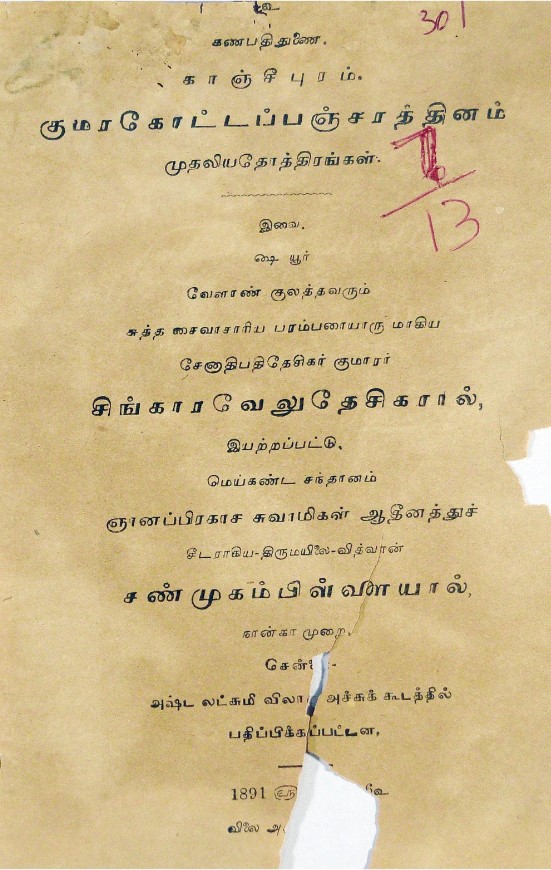 உ
301
கணபதிதுணை.
காஞ்சீபுரம்.
குமரகோட்டப்பஞ்சரத்தினம்
முதலியதோத்திரங்கள்.
13
இவை.
ஷை யூர்
வேளாண் குலத்தவரும்
சுத்த சைவாசாரிய பரம்பரையாரு மாகிய
சேனாதிபதிதேசிகர் குமாரர்
சிங்காரவேலுதேசிகரால்,
இயற்றப்பட்டு,
மெய்கண்ட சந்தானம்
ஞானப்பிரகாச சுவாமிகள் ஆதீனத்துச்
சீடராகிய-திருமயிலை-வித்வான்
சண்முகம்பிள்ளையால்,
நான்கா முறை,
சென்னை-
அஷ்ட லட்சுமி விலாச அச்சுக் கூடத்தில்
பதிப்பிக்கப்பட்டன,
1891 ௵
விலை